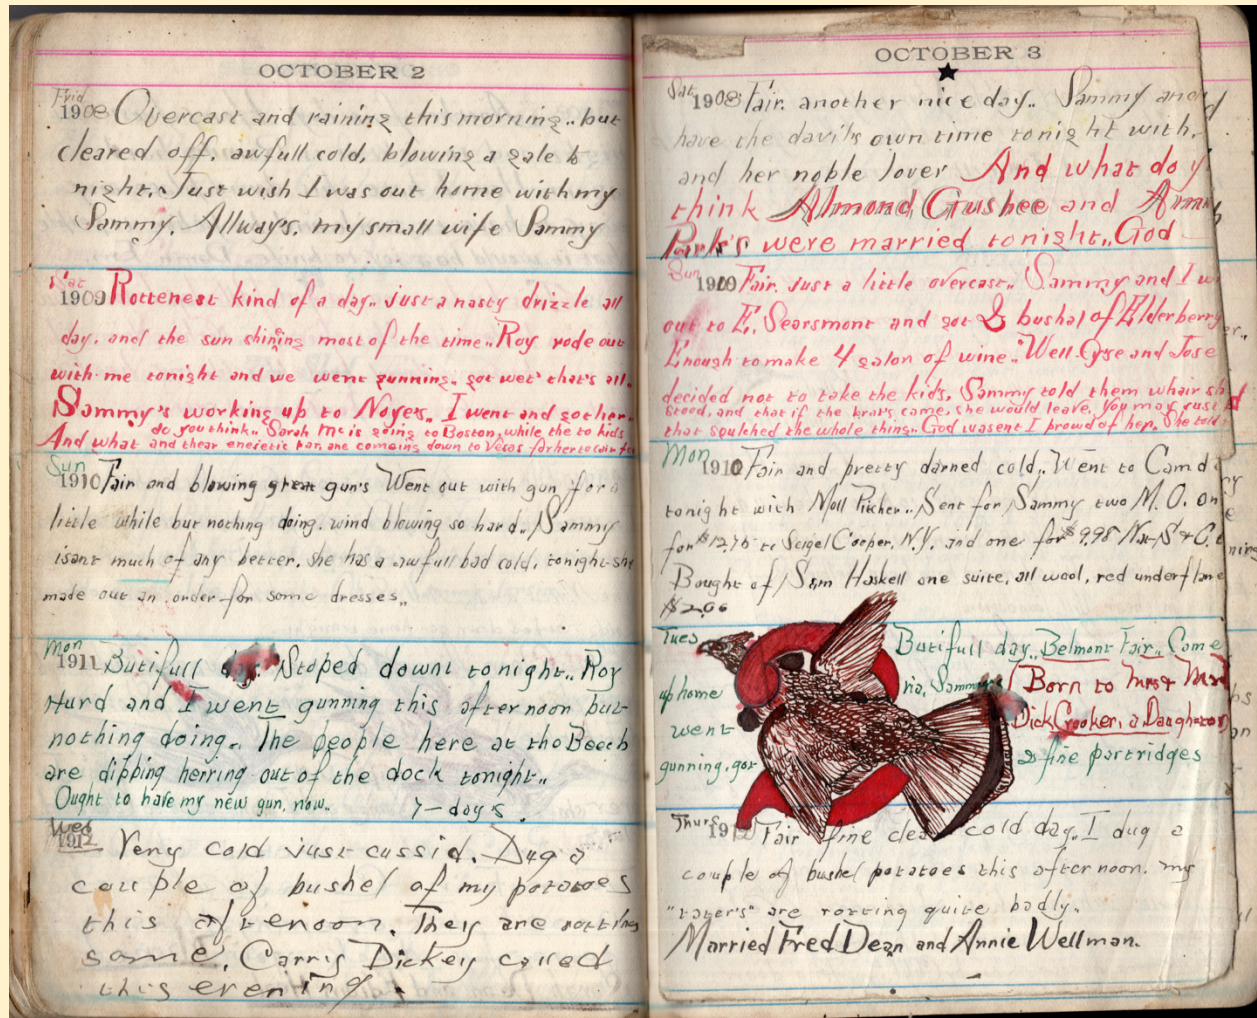 OCTOBER 2
Frid
1908 Overcast and raining this morning.. but
cleared off, awfull cold, blowing a gale to
night.. Just wish I was out home with my
Sammy. Allway's, my small wife Sammy
Sat
1909 Rottenest kind of a day.. just a nasty drizzle all
day, and the sun shining most of the time.. Roy rode out
with me tonight and we went gunning.. got wet' that's all.
Sammy's working up to Noyes. I went and got her..
do you think.. Sarah Mc is going to Boston, while the to kids
And what and thear are comeing down to for her to
Sun
1910 Fair and blowing great gun's Went out with gun for a
little while but nothing doing, wind blowing so hard.. Sammy
isant much of any better, she has a awfull bad cold, tonight she
made out an order for some dresses..
Mon
1911 Butifull day. Stoped downt tonight.. Roy
Hurd and I went gunning this afternoon but
nothing doing.. The people here at tho Beech
are dipping herring out of the dock tonight..
Ought to have my new gun, now.. 7-day's
Wed
1912 Very cold just cussid. Dug a
couple of bushel of my potatoes
this afternoon. They are rotting
some. Carry Dickey called
this evening.
OCTOBER 3
Sat
1908 Fair. another nice day.. Sammy and
have the davil's own time tonight with,
and her noble lover And what do y
think Almond Gushee and
Park's were married tonight.. God
Sun
1909 Fair. Just a little overcast.. Sammy and I w
out to E. Searsmont and got & bushal of Elderberry
Enough to make 4 galon of wine.. Well Cyse and Jose
decided not to take the kids, Sammy told them whair sh
stood, and that if the brat's came, she would leave, You may just
that squlched the whole thing.. God wasent I proud of her, She told
Mon
1910 Fair and pretty darned cold.. Went to Camd
tonight with Moll Pitcher.. Sent for Sammy two M.O. on
for $12.76 to Seigel Cooper, N.Y. and one for $9.98 Nat S & C.
Bought of Sam Haskell one suite, all wool, red underflane
$2.00
Tues
Butifull day.. Belmont Fair.. Came
up home ria, Sammy Born to Mrs &
went Dick Crooker, a Daughter
gunning, got 2 fine partridges
Thurs
1912 Fair fine clea cold day.. I dug a
couple of bushel potatoes this afternoon. my
"tater's" are rotting quite badly.
Married Fred Dean and Annie Wellman.